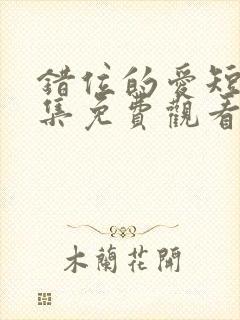 錯位的愛短
集免費觀看
木蘭花開